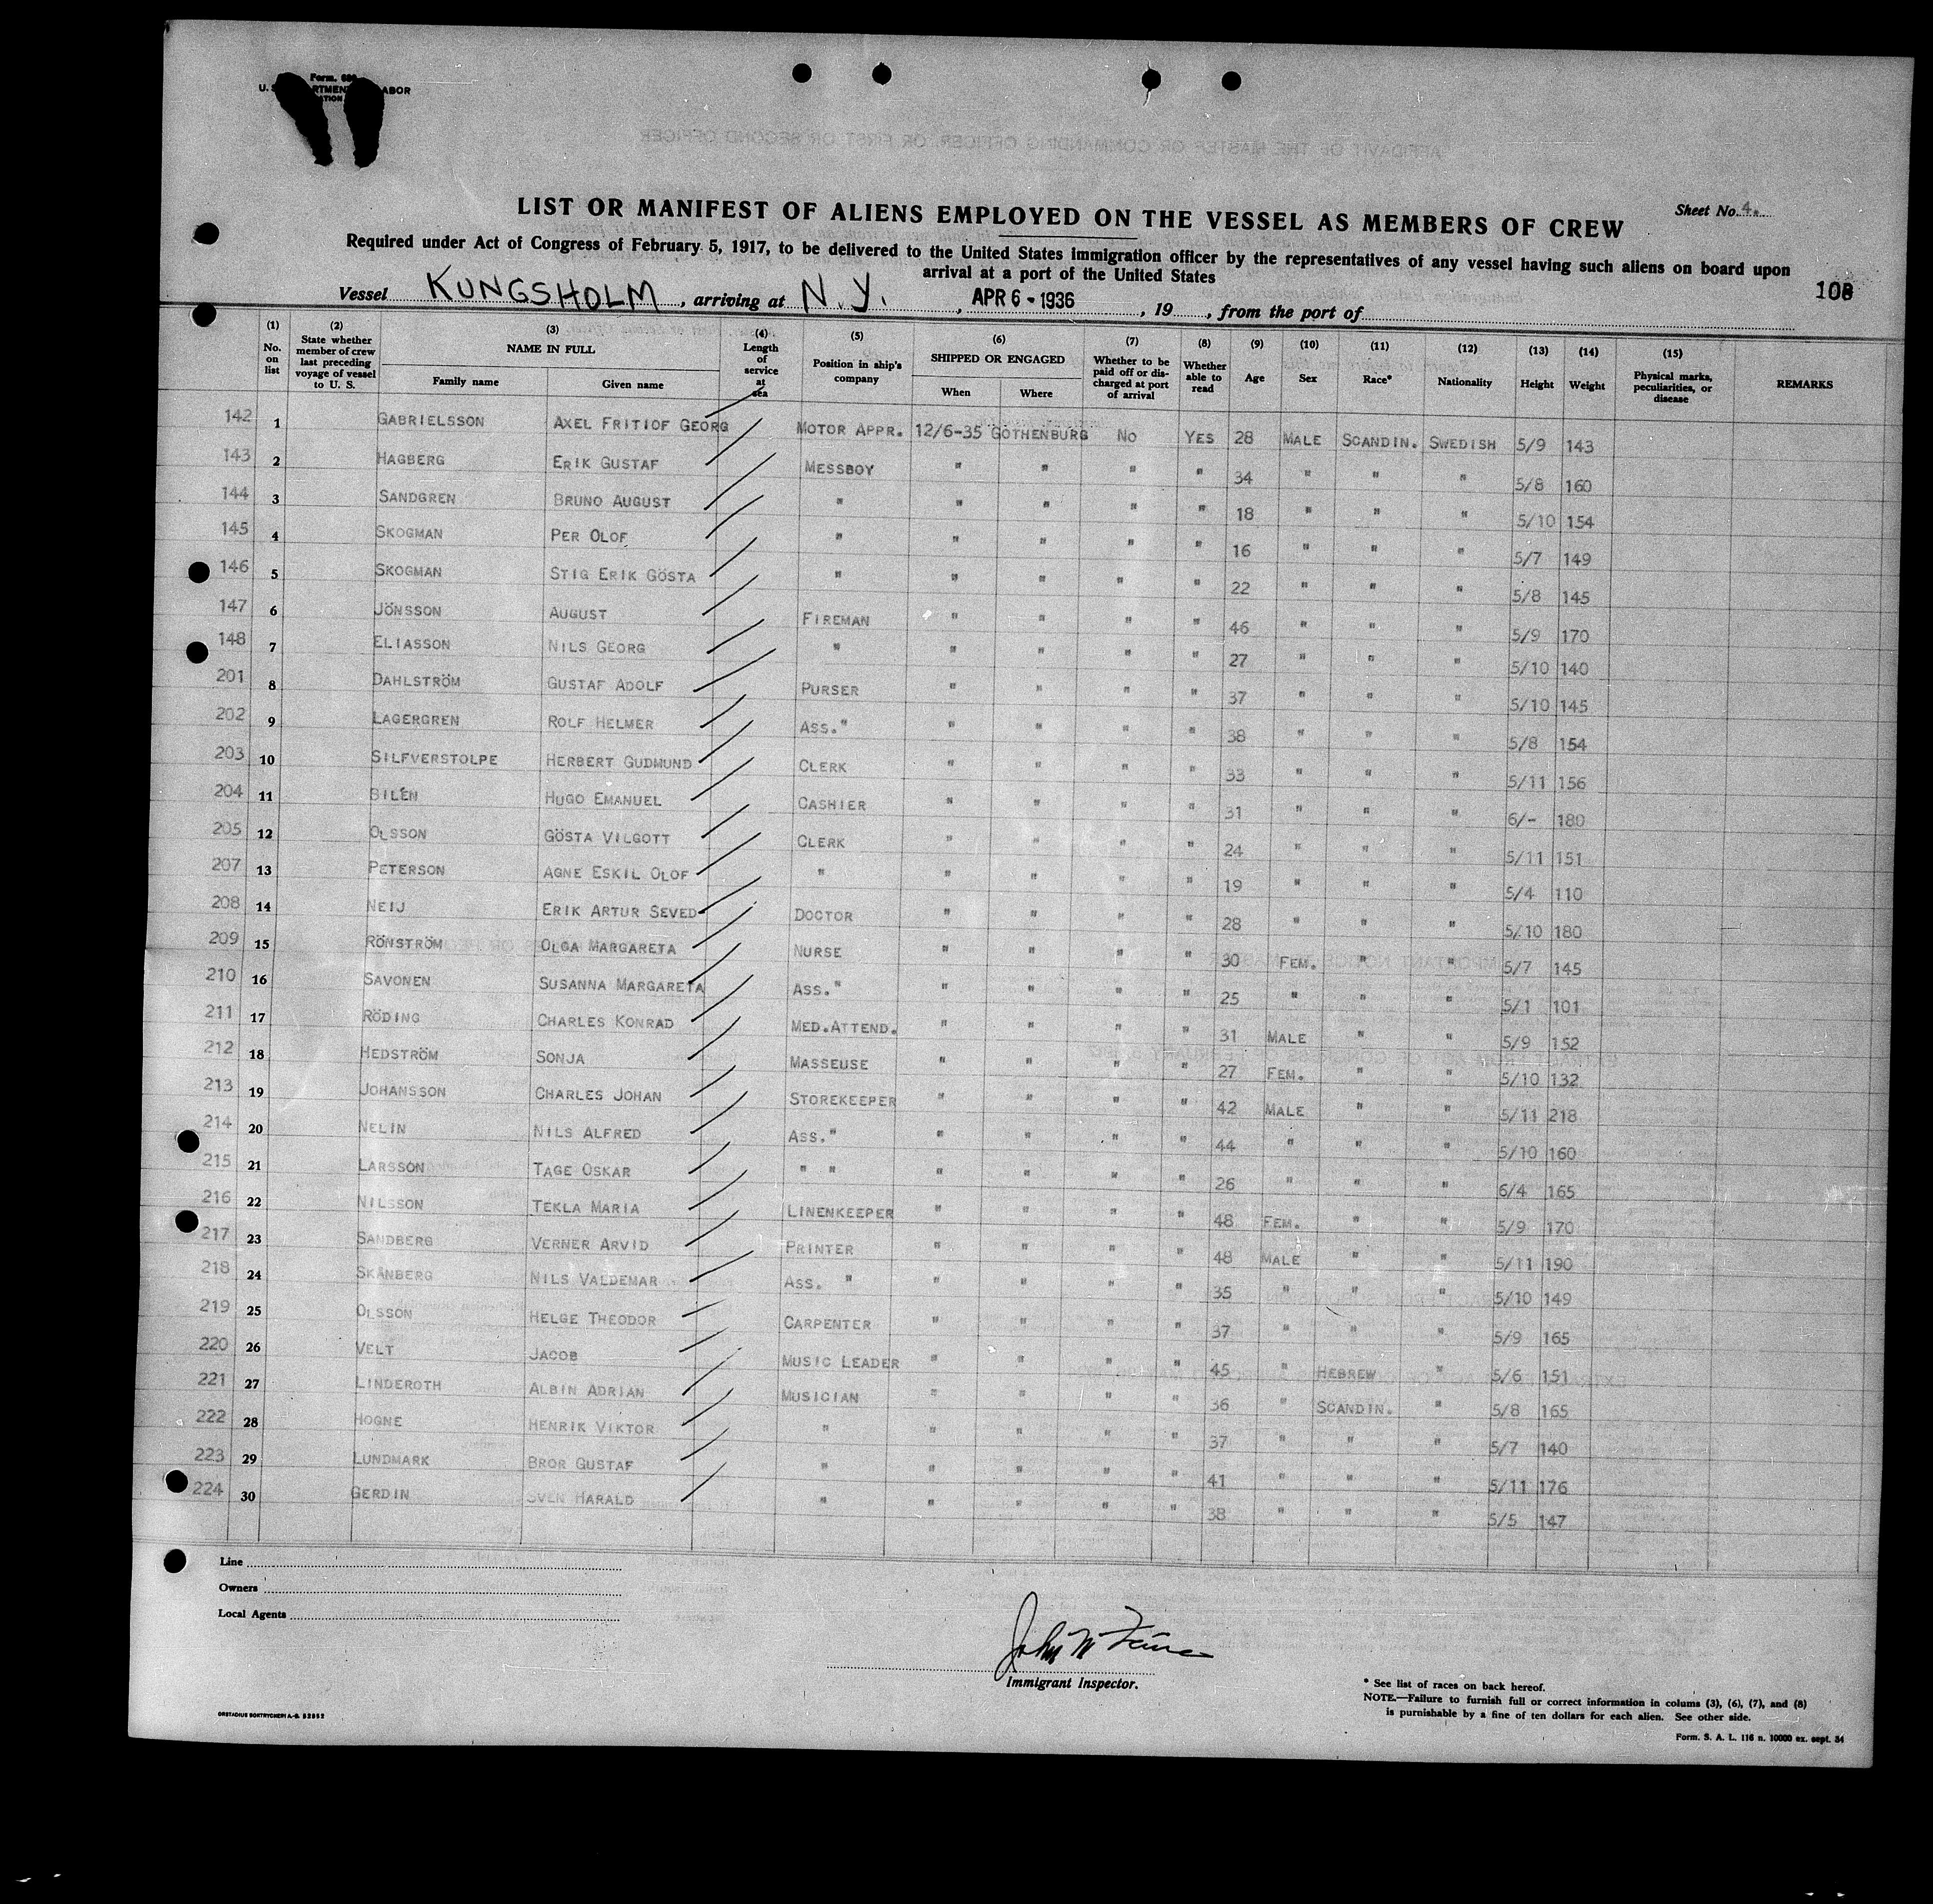 Form. 680
U. S. DEPARTMENT LABOR
LIST OR MANIFEST OF ALIENS EMPLOYED ON THE VESSEL AS MEMBERS OF CREW
Sheet No. 4.
Required under Act of Congress of February 5, 1917, to be delivered to the United States immigration officer by the representatives of any vessel having such aliens on board upon
arrival at a port of the United States
108
Vessel KUNGSHOLM, arriving at N.Y., APR 6 - 1936, 19, from the port of
(1) No. on list (2) State whether member of crew last preceding voyage of vessel to U. S. (3) NAME IN FULL Family name Given name (4) Length of service at sea (5) Position in ship's company (6) SHIPPED OR ENGAGED When Where (7) Whether to be paid off or discharged at port of arrival (8) Whether able to read (9) Age (10) Sex (11) Race* (12) Nationality (13) Height (14) Weight (15) Physical marks, peculiarities, or disease REMARKS
142 1 GABRIELSSON AXEL FRITIOF GEORG MOTOR APPR. 12/6-35 GOTHENBURG No YES 28 MALE SCANDIN. SWEDISH 5/9 143
143 2 HAGBERG ERIK GUSTAF MESSBOY " " " " 34 " " " 5/8 160
144 3 SANDGREN BRUNO AUGUST " " " " " 18 " " " 5/10 154
145 4 SKOGMAN PER OLOF " " " " " 16 " " " 5/7 149
146 5 SKOGMAN STIG ERIK GÖSTA " " " " " 22 " " " 5/8 145
147 6 JÖNSSON AUGUST FIREMAN " " " " 46 " " " 5/9 170
148 7 ELIASSON NILS GEORG " " " " " 27 " " " 5/10 140
201 8 DAHLSTRÖM GUSTAF ADOLF PURSER " " " " 37 " " " 5/10 145
202 9 LAGERGREN ROLF HELMER ASS." " " " " 38 " " " 5/8 154
203 10 SILFVERSTOLPE HERBERT GUDMUND CLERK " " " " 33 " " " 5/11 156
204 11 BILÉN HUGO EMANUEL CASHIER " " " " 31 " " " 6/- 180
205 12 OLSSON GÖSTA VILGOTT CLERK " " " " 24 " " " 5/11 151
207 13 PETERSON AGNE ESKIL OLOF " " " " " 19 " " " 5/4 110
208 14 NEIJ ERIK ARTUR SEVED DOCTOR " " " " 28 " " " 5/10 180
209 15 RÖNSTRÖM OLGA MARGARETA NURSE " " " " 30 FEM. " " 5/7 145
210 16 SAVONEN SUSANNA MARGARETA ASS." " " " " 25 " " " 5/1 101
211 17 RÖDING CHARLES KONRAD MED.ATTEND. " " " " 31 MALE " " 5/9 152
212 18 HEDSTRÖM SONJA MASSEUSE " " " " 27 FEM. " " 5/10 132
213 19 JOHANSSON CHARLES JOHAN STOREKEEPER " " " " 42 MALE " " 5/11 218
214 20 NELIN NILS ALFRED ASS." " " " " 44 " " " 5/10 160
215 21 LARSSON TAGE OSKAR " " " " " " 26 " " " 6/4 165
216 22 NILSSON TEKLA MARIA LINENKEEPER " " " " 48 FEM. " " 5/9 170
217 23 SANDBERG VERNER ARVID PRINTER " " " " 48 MALE " " 5/11 190
218 24 SKÅNBERG NILS VALDEMAR ASS. " " " " " 35 " " " 5/10 149
219 25 OLSSON HELGE THEODOR CARPENTER " " " " 37 " " " 5/9 165
220 26 VELT JACOB MUSIC LEADER " " " " 45 " HEBREW " 5/6 151
221 27 LINDEROTH ALBIN ADRIAN MUSICIAN " " " " 36 " SCANDIN. " 5/8 165
222 28 HOGNE HENRIK VIKTOR " " " " " 37 " " " 5/7 140
223 29 LUNDMARK BROR GUSTAF " " " " " 41 " " " 5/11 176
224 30 GERDIN SVEN HARALD " " " " " 38 " " " 5/5 147
Line
Owners
Local Agents
John
Immigrant Inspector.
* See list of races on back hereof.
NOTE.—Failure to furnish full or correct information in colums (3), (6), (7), and (8)
is punishable by a fine of ten dollars for each alien. See other side.
ORSTADIUS BOKTRYCKERI A.-B. 52952
Form. S. A. L. 116 n. 10000 ex. sept. 34